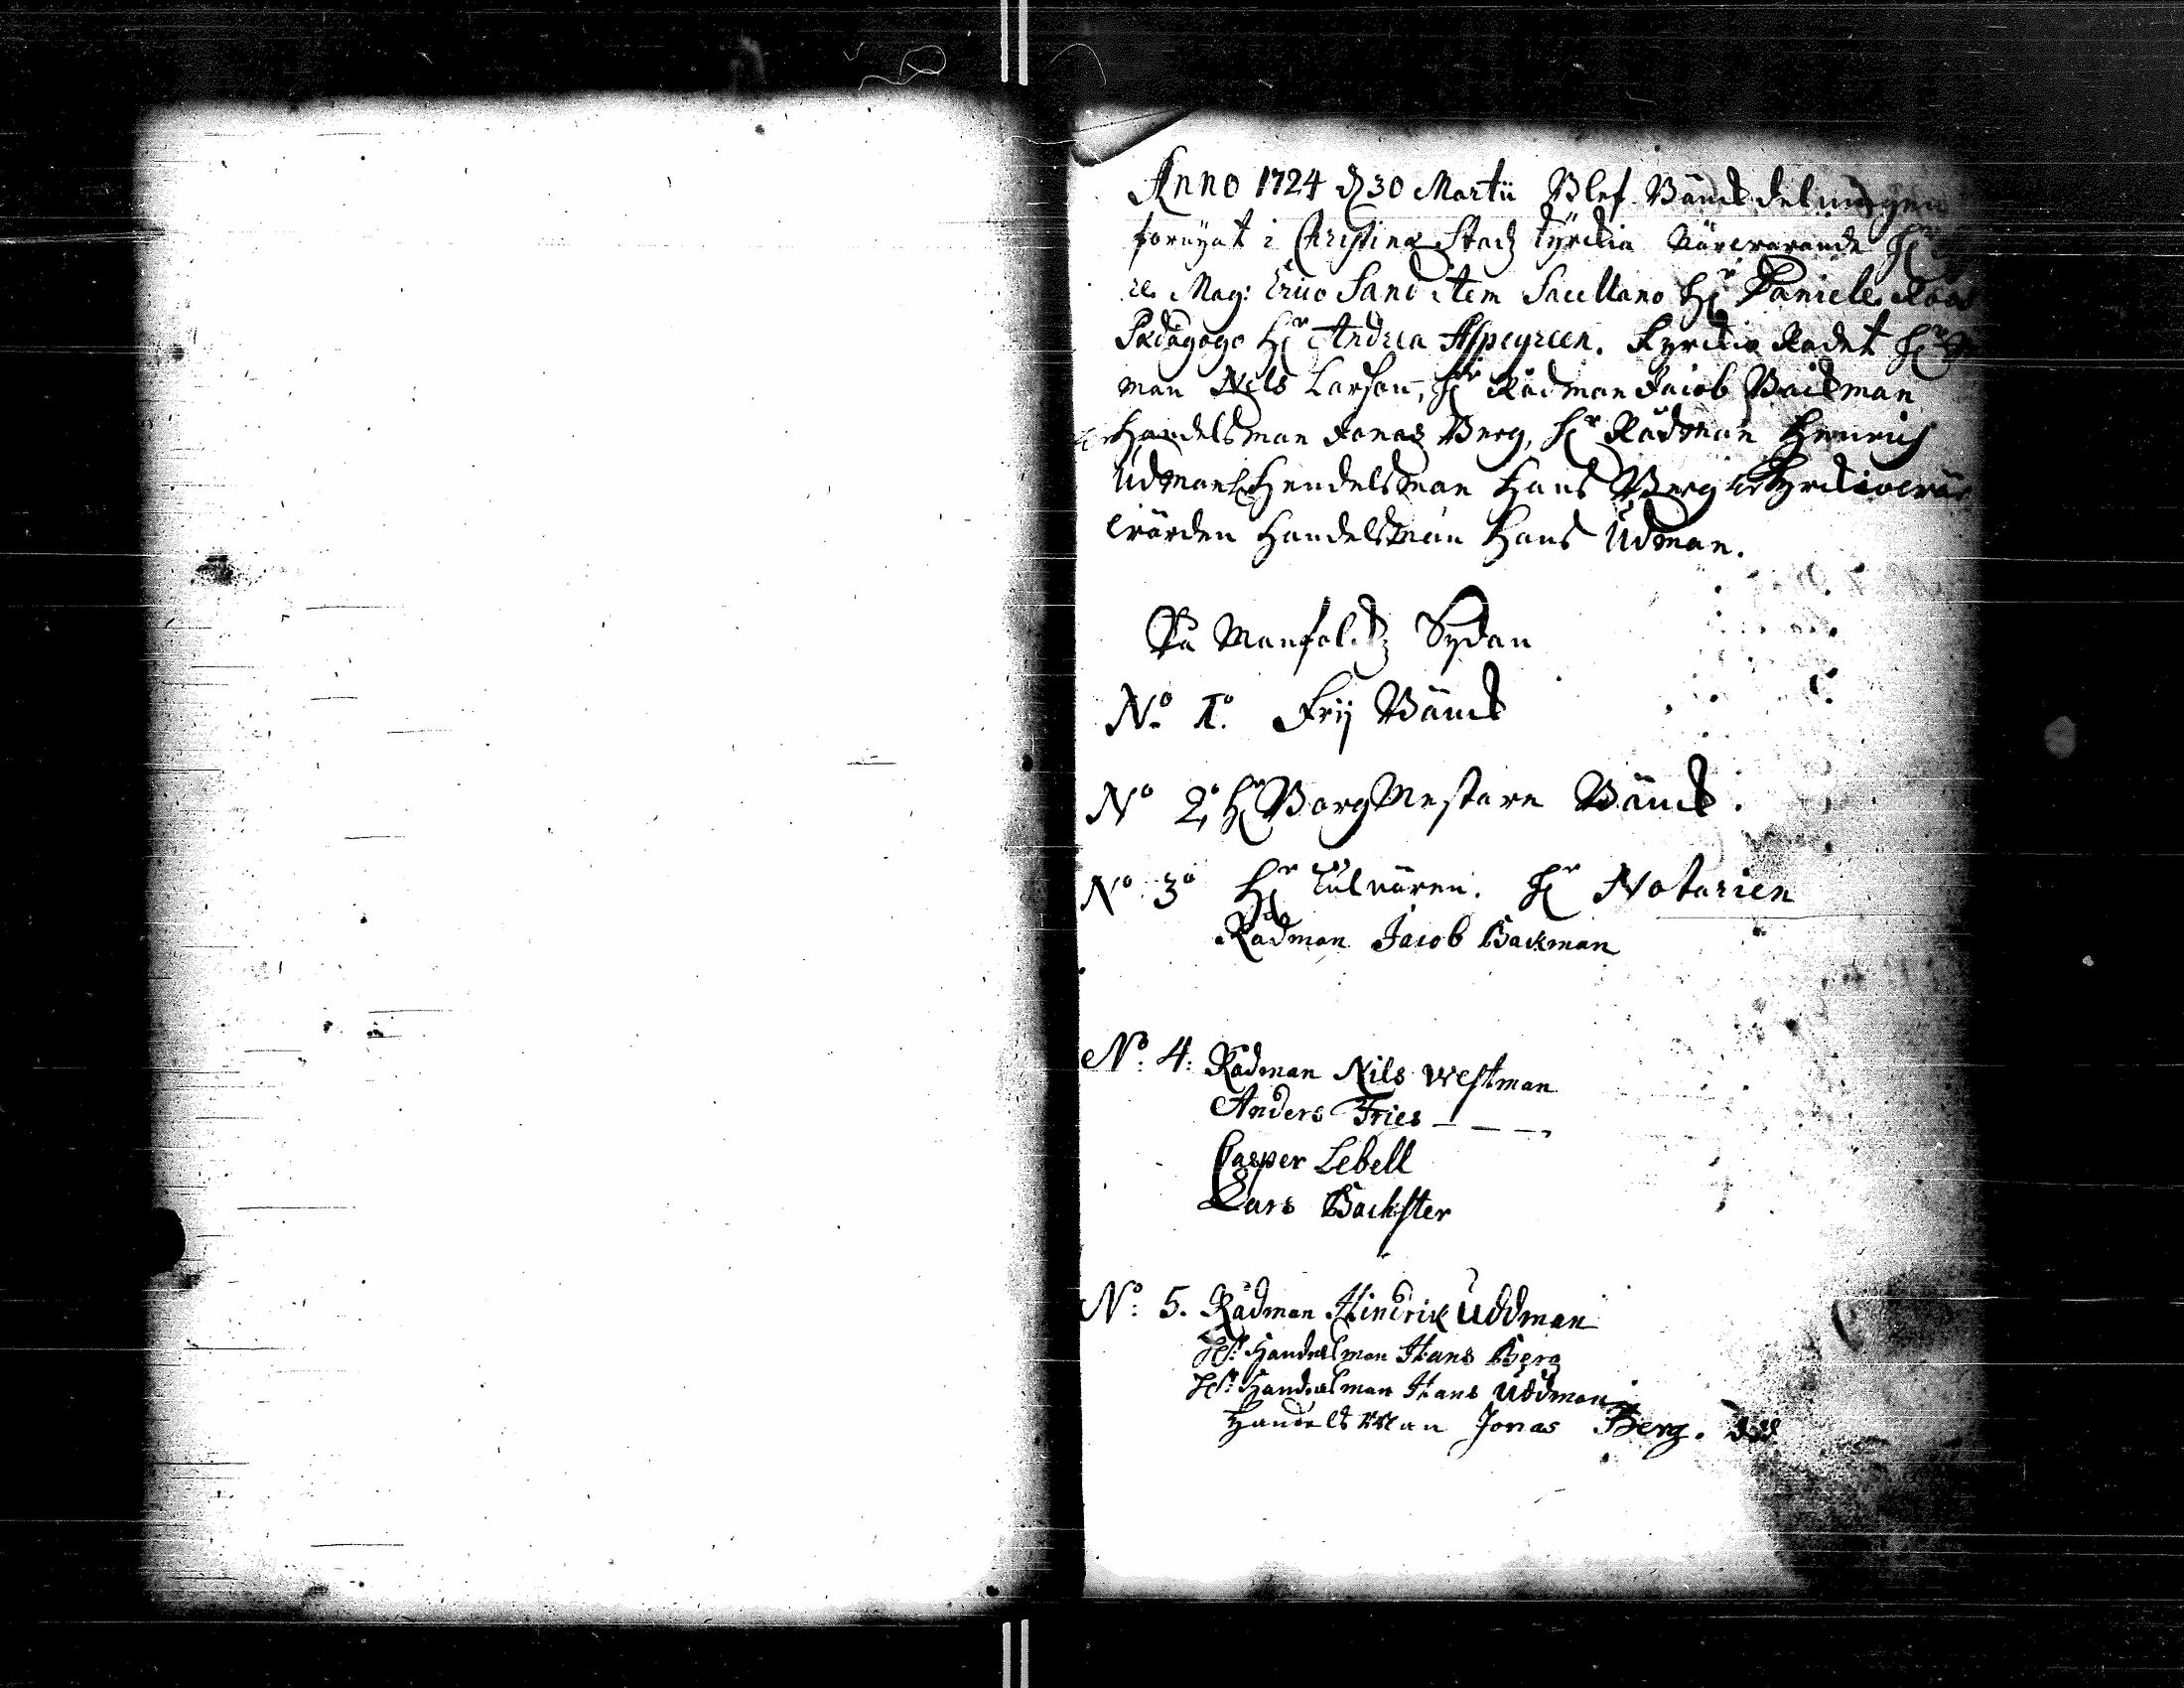 Anno 1724 d 30 Martii Blef Bänckdelningen
fornyat i Christinæ Stadz Kyrckia Närwarande Hr
re Mag: Erico Sand item Sacellano Hr Daniele
Pædagogo Hr Andrea Aspegreen. Kyrckio Rådet Hr
man Nils Larson, Hr Rådman Jacob Backman
Handelsman Jonas Berg, Hr Rådman Henrich
Udman Hr Handelsman Hans Berg Kyrckiowär
wärden Handelsman Hans Udman.
På Manfolckz Sydan
No 1o Frij Bänck
No 2o Hr BorgMestare Bänck.
No 3o Hr Tulnären. Hr Notarien
Rådman Jacob Backman
No: 4: Rådman Nils Westman
Anders Fries
Casper Lebell
Lars Backster
No: 5. Rådman Hindrik Uddman
Hr: Handelsman Hans Berg
Hr: Handelsman Hans Uddman
Handelsman Jonas Berg.